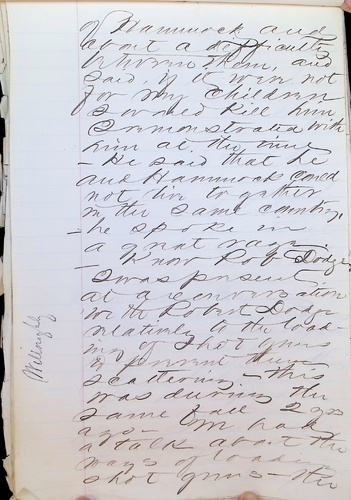 of Hammock and
about a difficulty
between them, and
said, if it were not
for my children
I would kill him
I remonstrated with
him at the time
- He said that he
and Hammock could
not live together
in the same country,
- he spoke in
a great rage.
- I know Robt Dodge
I was present
at a conversation
with Robert Dodge
relatively to the load-
ing of shot guns
to prevent their
scattering - this
was during the
same fall 2 yrs
ago - We had
a talk about the
ways of loading
shot guns - the
Willoughby